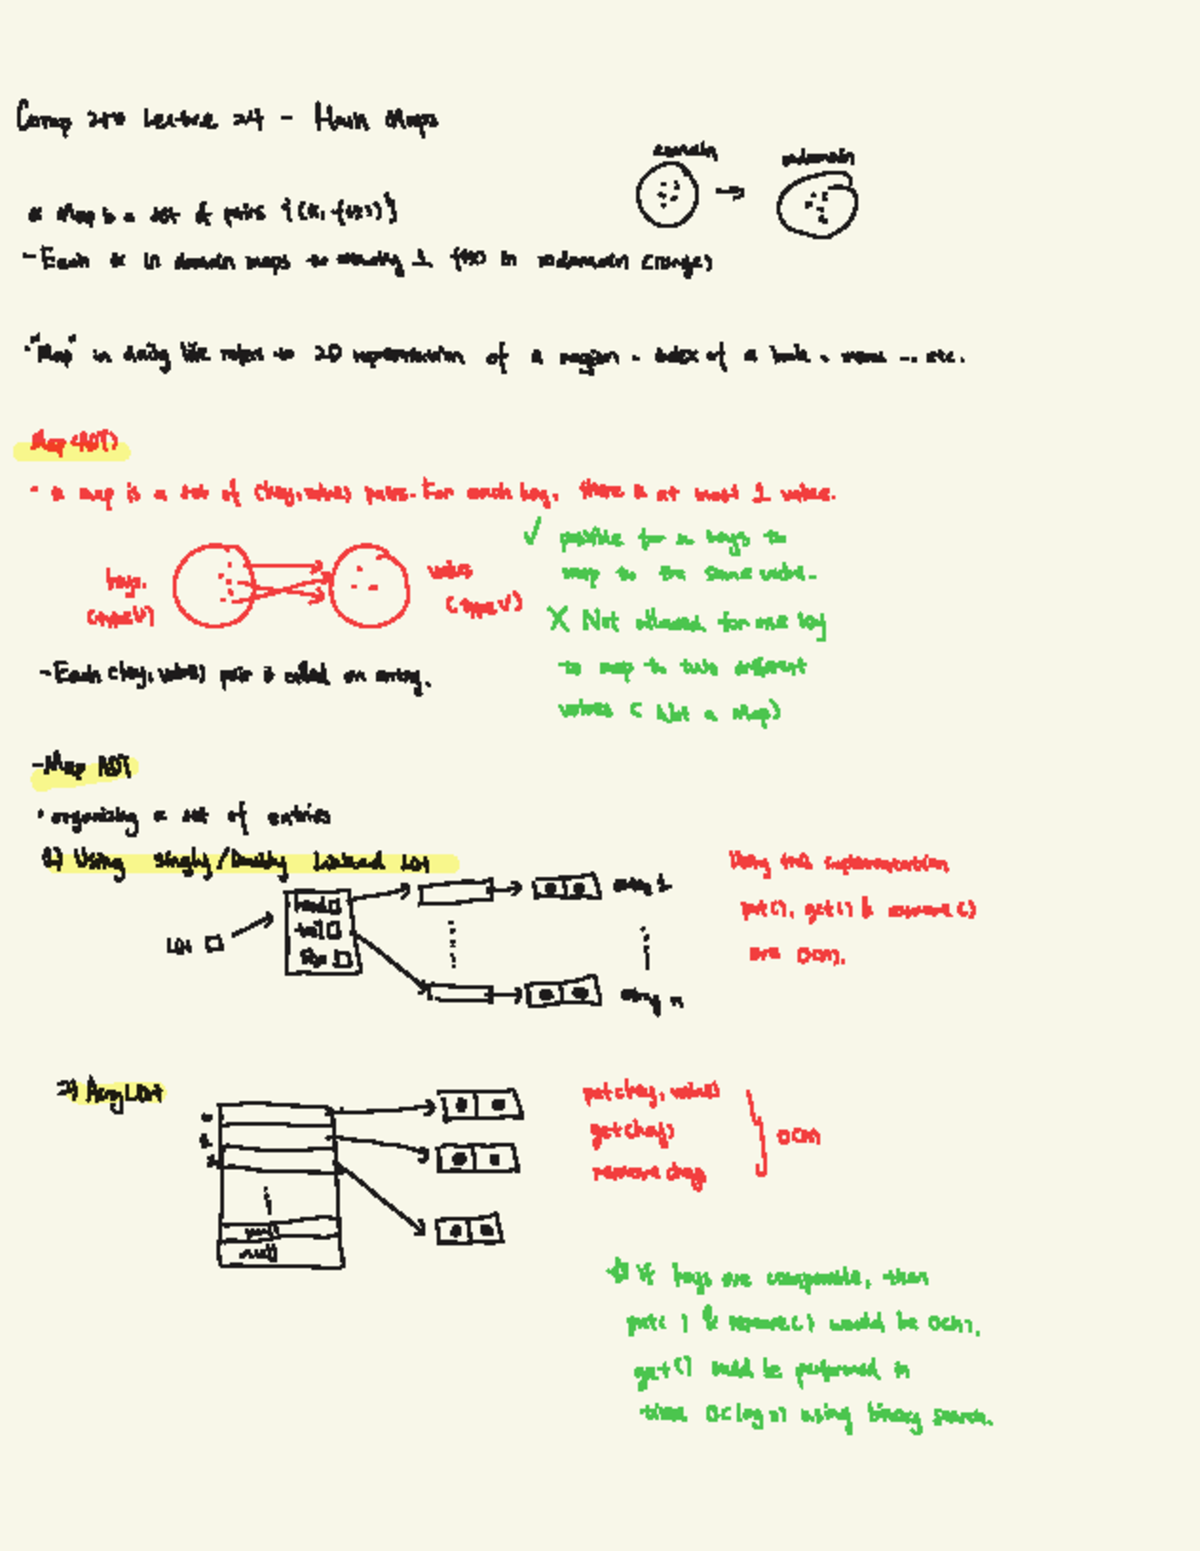 Comp 250 Lecture 24 - Hash Maps
domain
codomain
a Map is a set of pairs {(x, f(x))}
- Each x in domain maps to exactly 1 f(x) in codomain (range)
· "Map" in daily life refers to 2D representation of a region, index of a book, menu ... etc.
Map (ADT)
· a map is a set of (key, value) pairs. For each key, there is at most 1 value.
✓ possible for n keys to
map to the same value.
keys.
(type V)
values
(type V)
X Not allowed for one key
to map to two different
values (Not a Map)
- Each (key, value) pair is called an entry.
- Map ADT
· organizing a set of entries
1) Using Singly/Doubly Linked List
List
head
tail
size
entry 1
entry n
Using this implementation
put(), get() & remove()
are O(n).
2) ArrayList
null
null
put(key, value)
get(key)
remove(key)
O(n)
If keys are comparable, then
put( ) & remove( ) would be O(n),
get() could be performed in
time O(log n) using binary search.